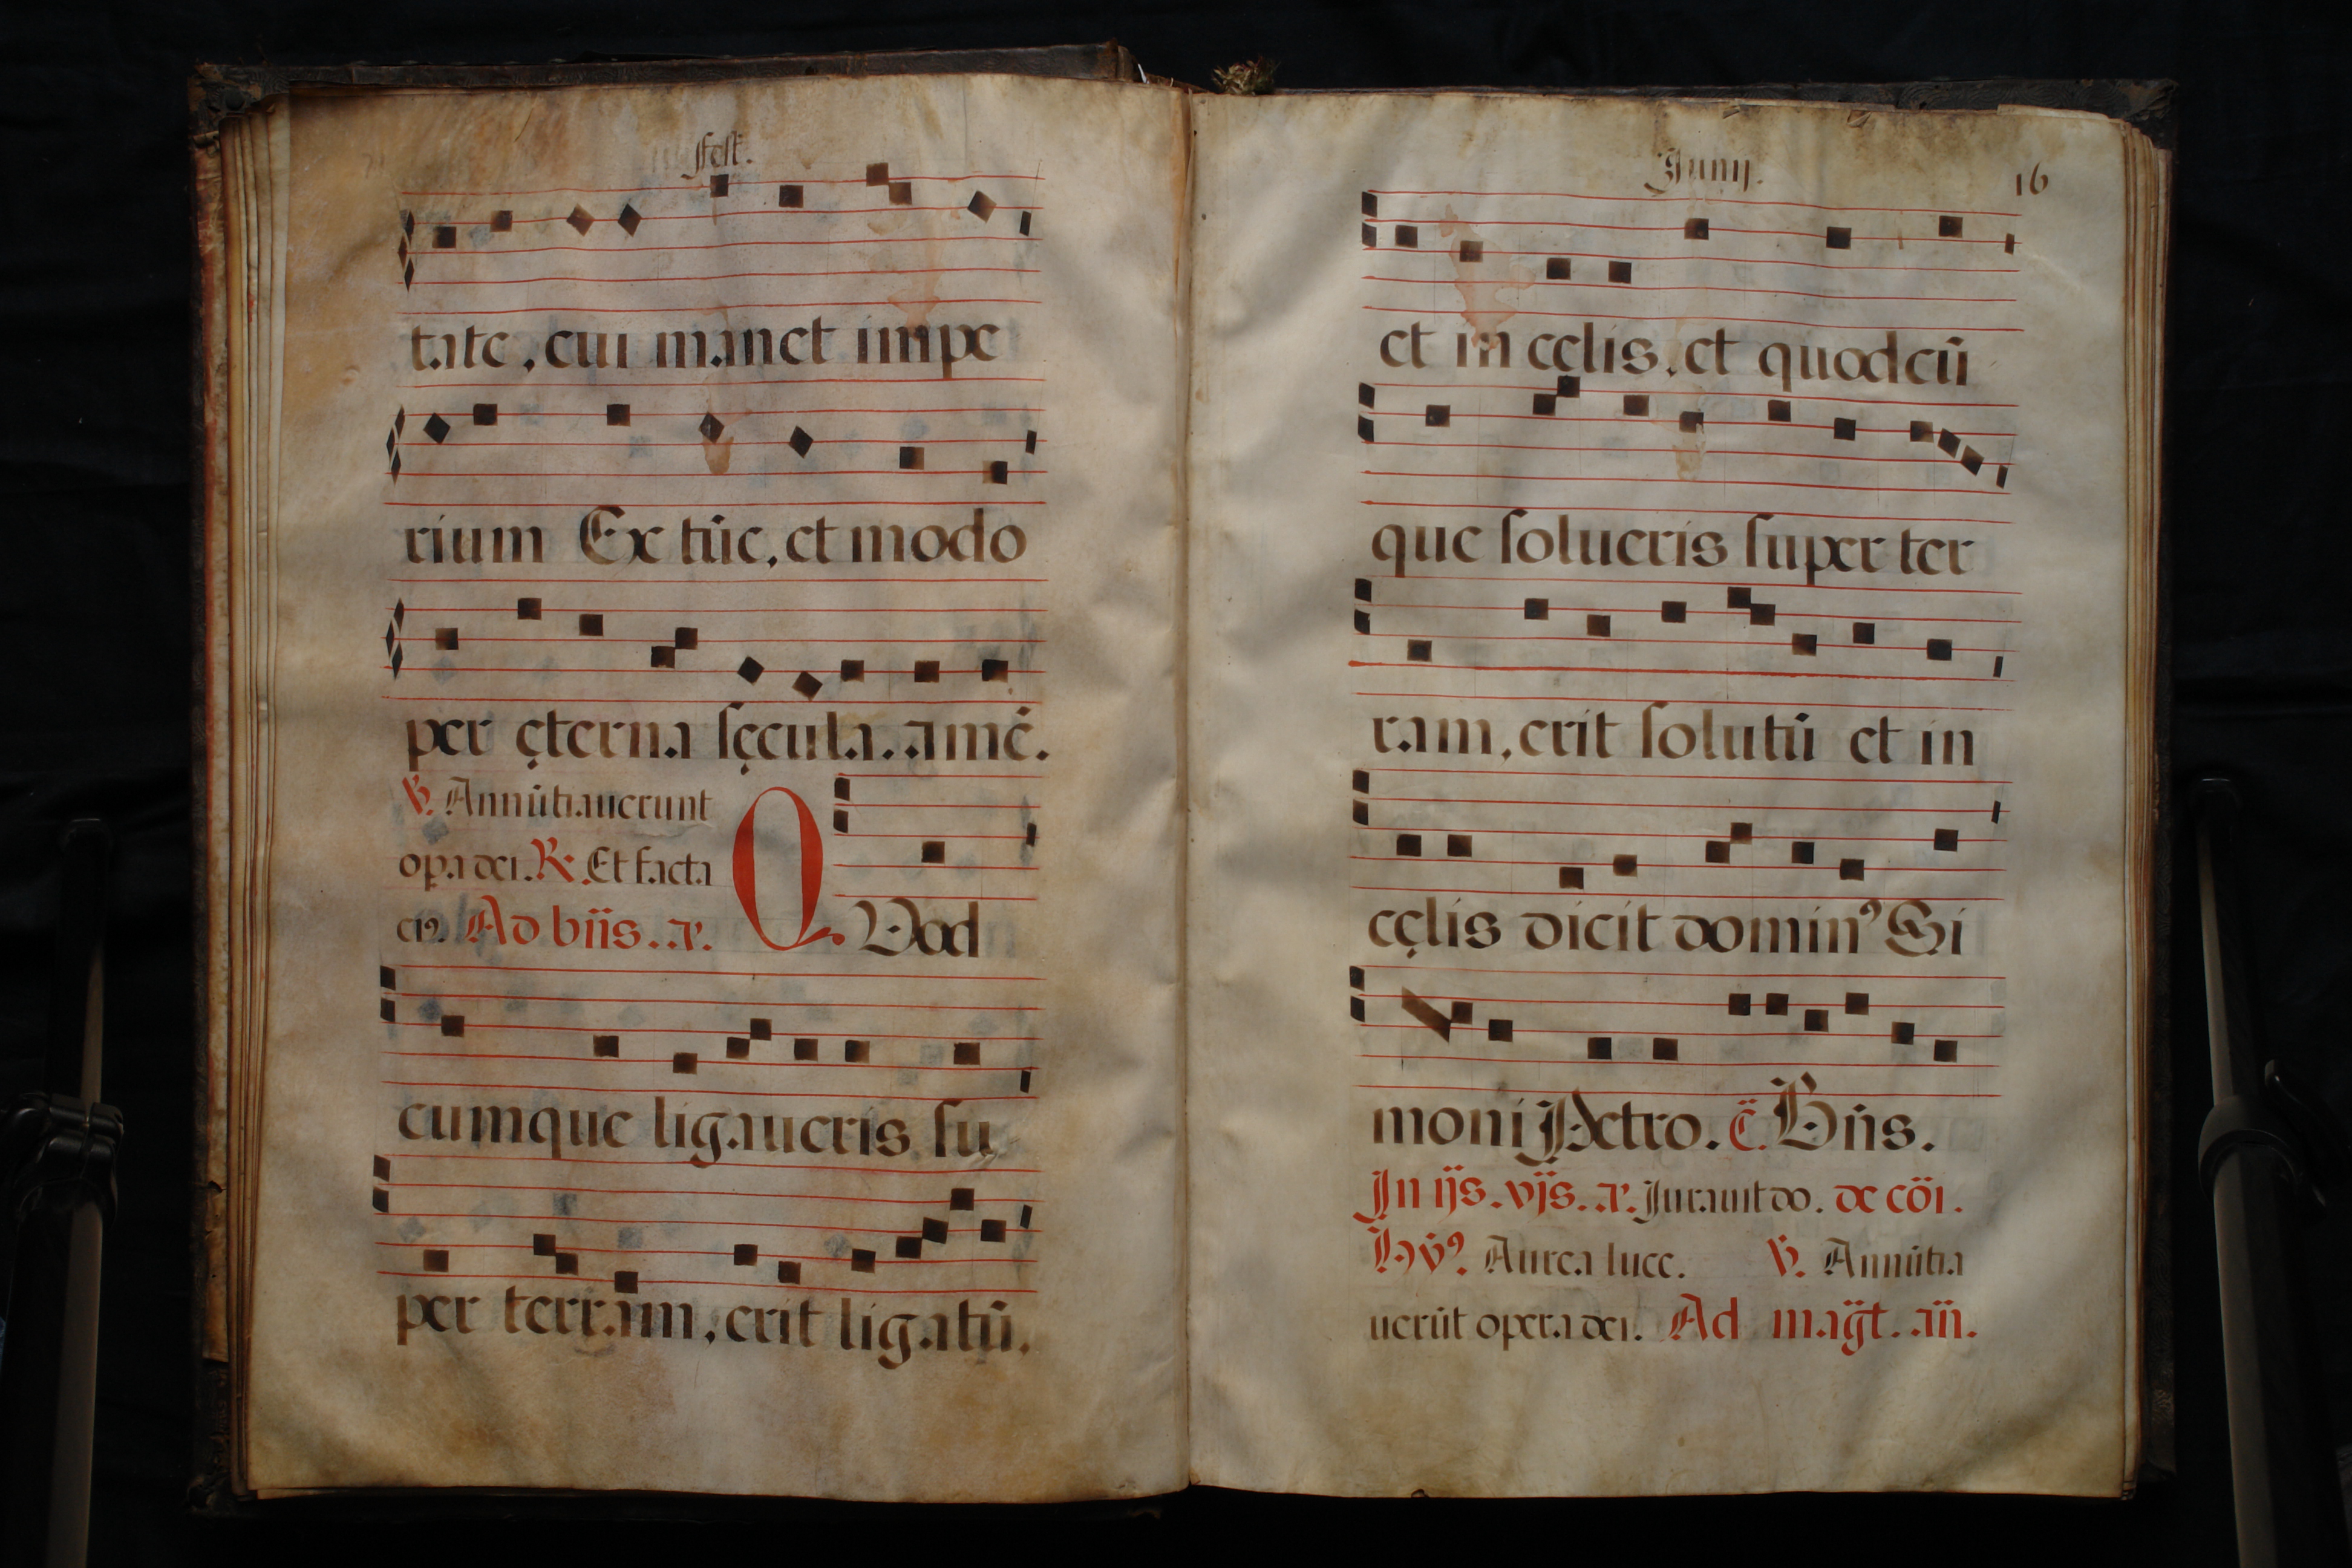 fest.
tate, cui manet impe
rium Ex tūc, et modo
per ęterna sęcula. amē.
℣. Annūtiauerunt
opa dei. ℟. Et facta
eiꝰ. Ad bñs. a.
QVod
cumque ligaueris su
per terram, erit ligatū.
Junij. 16
et in cęlis, et quodcū
que solueris super ter
ram, erit solutū et in
cęlis dicit dominꝰ Si
moni Petro. c̄. Bn̄s.
In ijs. vjs. a. Jurauit do. de cōi.
Hȳꝰ. Aurea luce. ℣. Annūtia
uerūt opera dei. Ad mag̃t. an̄.